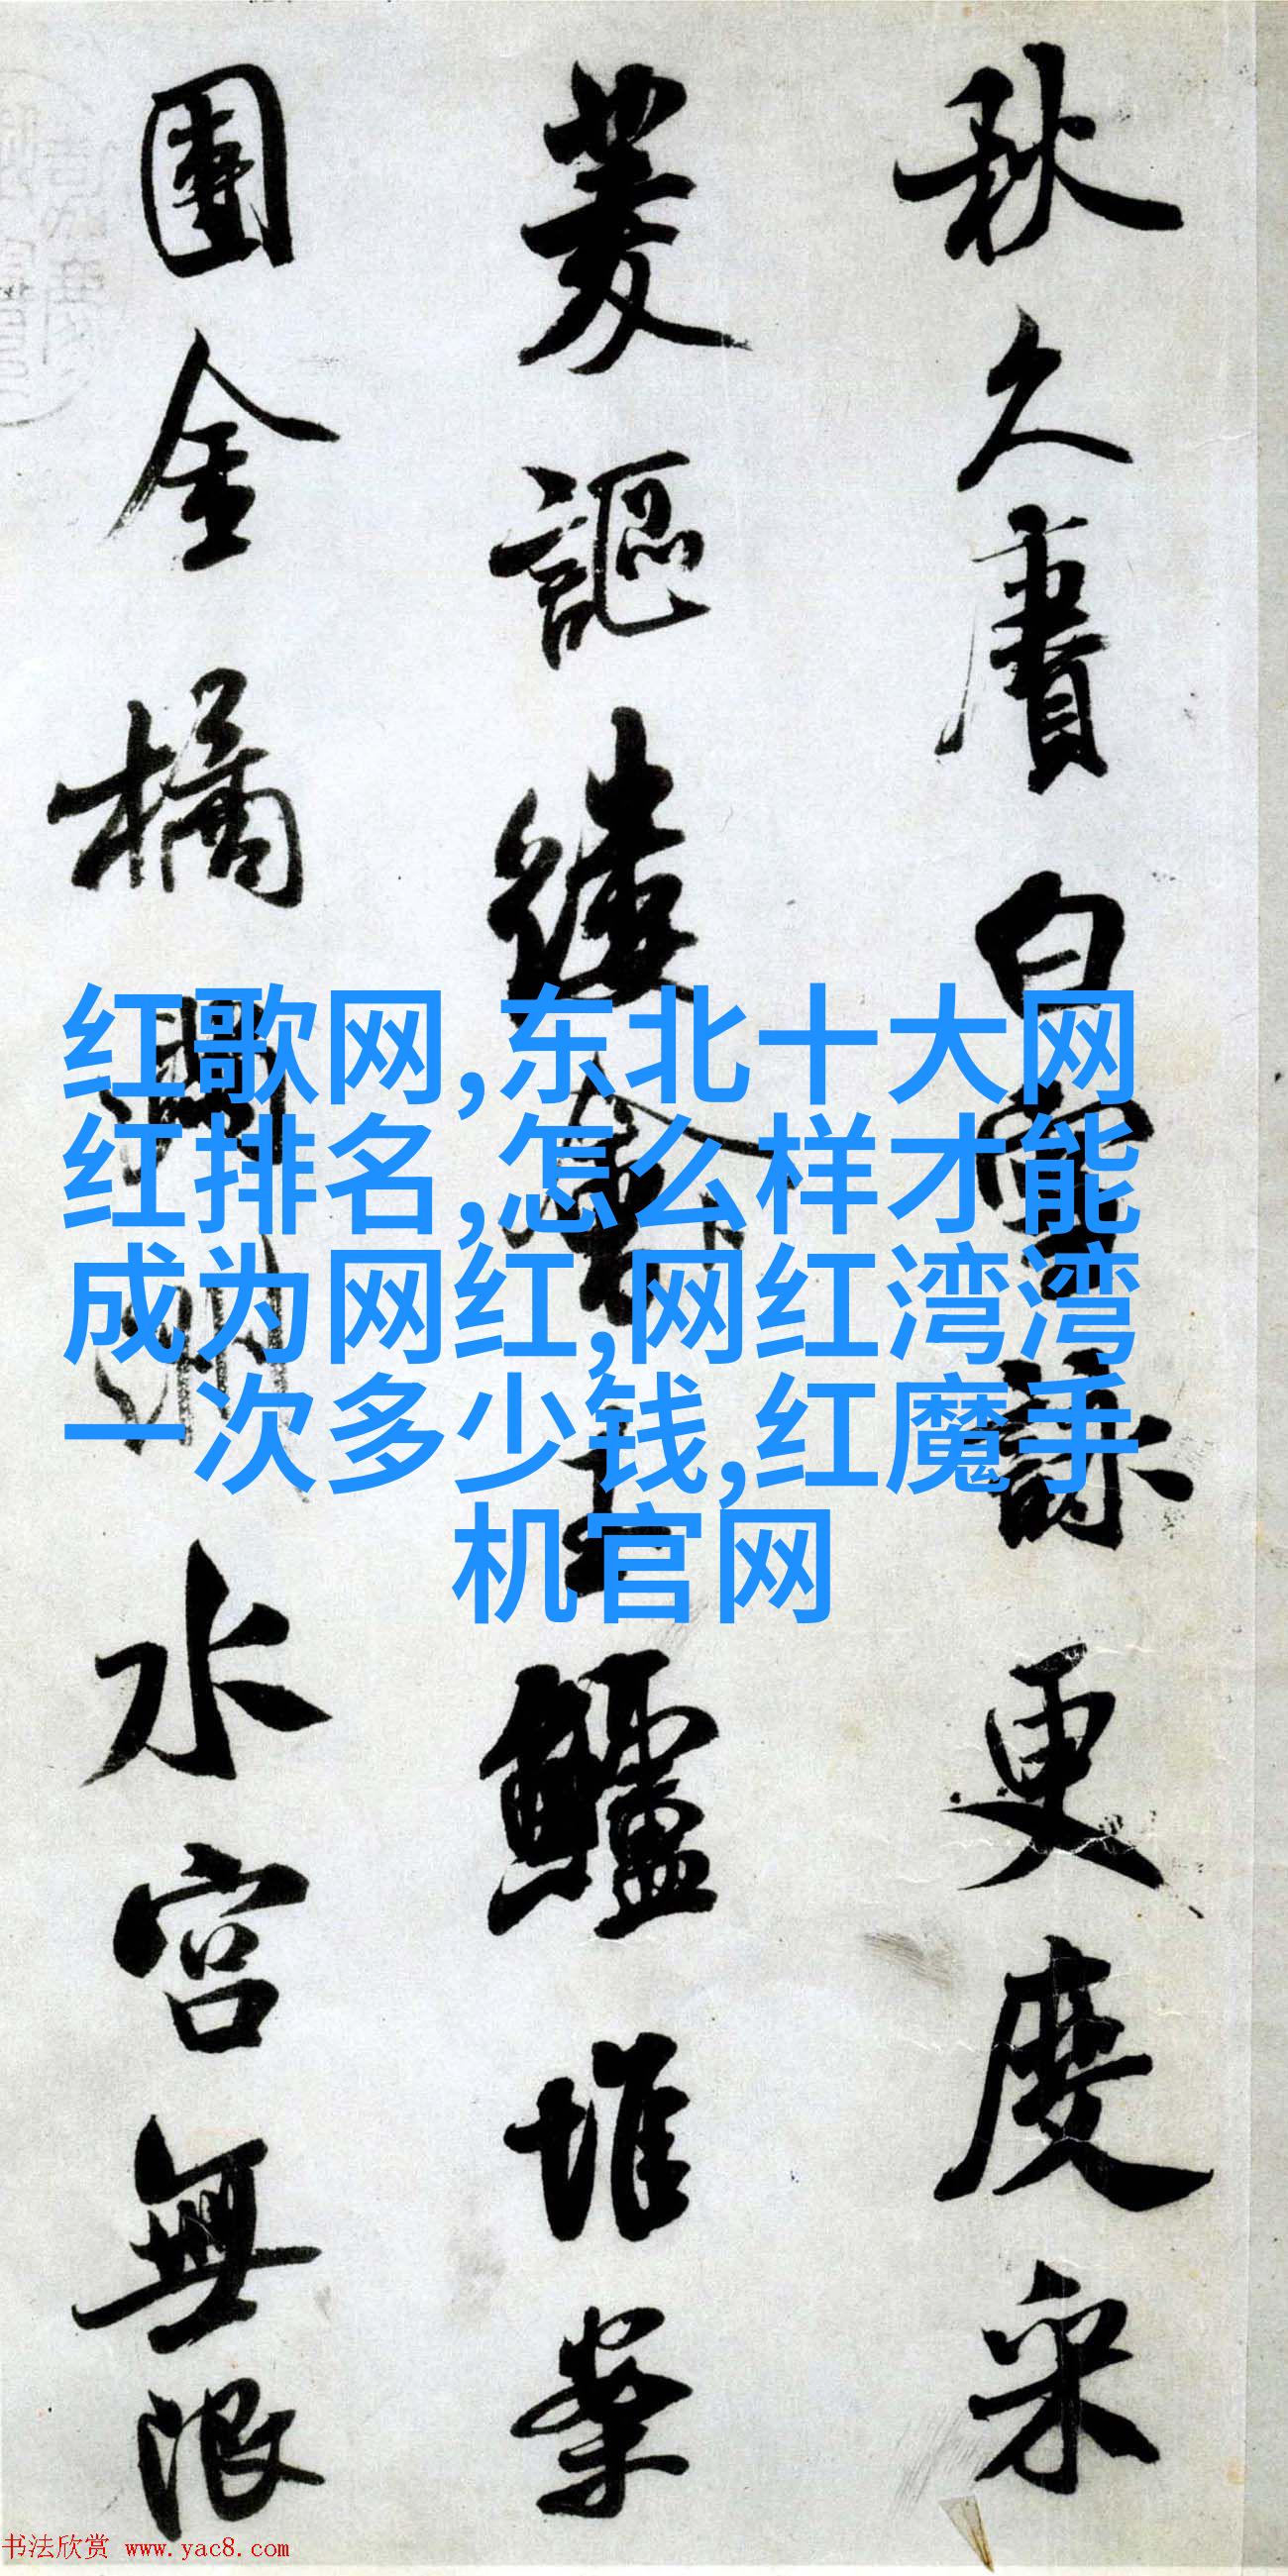 秋久賡白雪詠更度采
菱謳縷會玉鱸堆案
團金橘滿洲水宮無限
红歌网,东北十大网
红排名,怎么样才能
成为网红,网红湾湾
一次多少钱,红魔手
机官网
书法欣赏 www.yac8.com